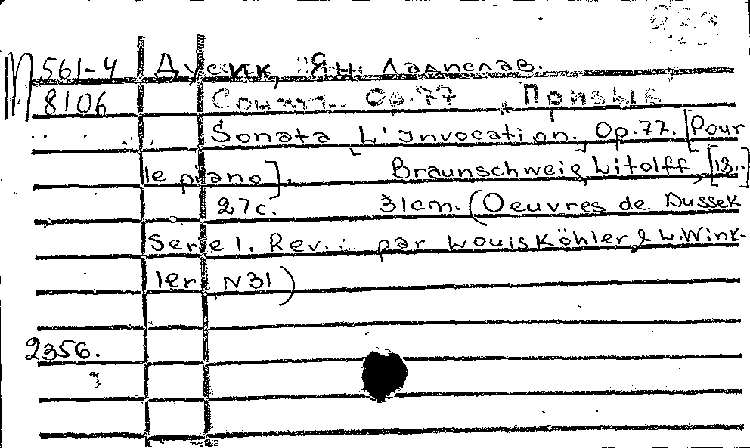 М 561-4 Дусик, Ян Ладислав.
8106 Соната. Op. 77 "Призыв
Sonata L'invocation. Op. 77. [Pour
le piano]. Braunschweig, Litolff, [18..]
27c. 31cm. (Oeuvres de Dussek
Serie 1. Rev. par Louis Köhler & L. Wink-
ler N 31)
2356.